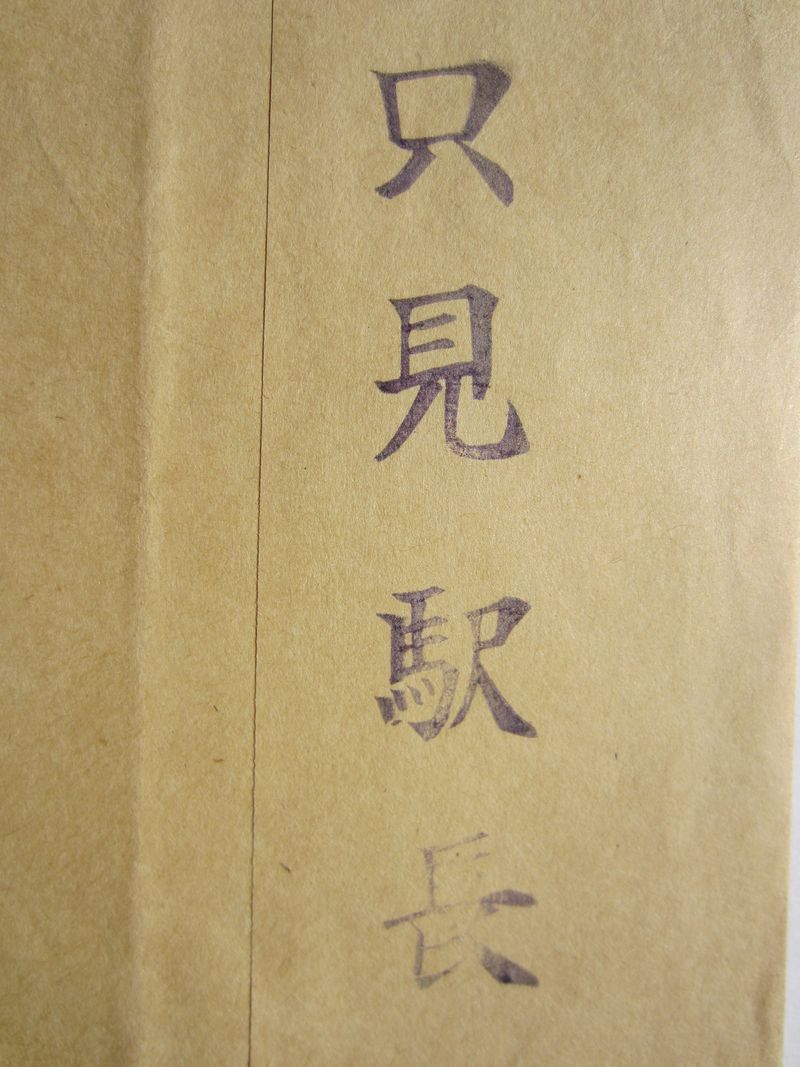 只見駅長